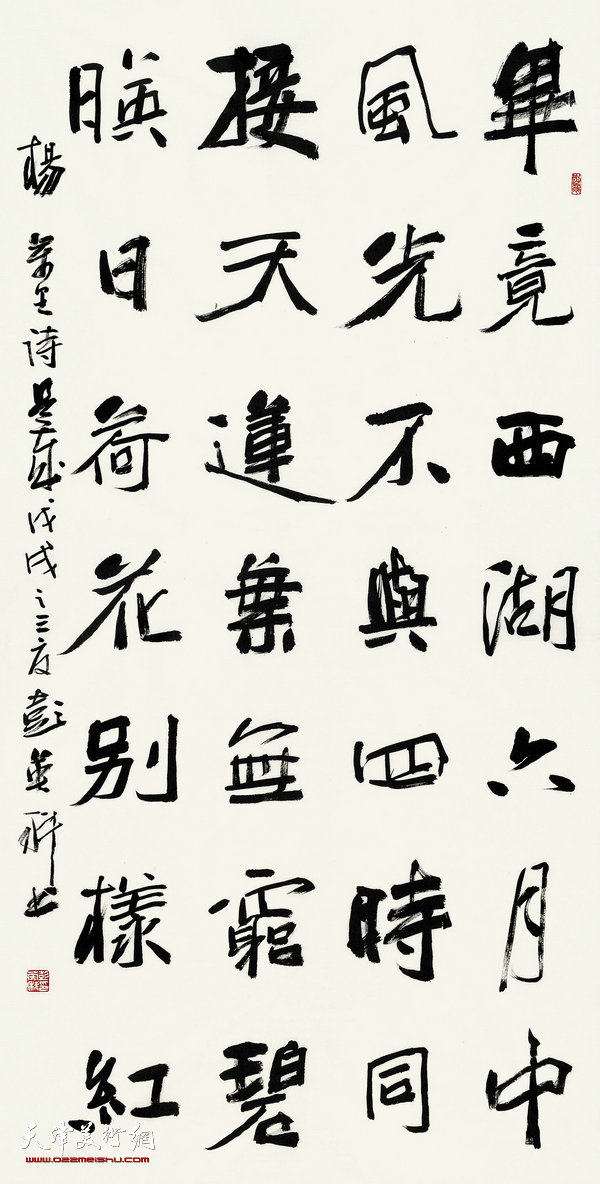 畢竟西湖六月中
風光不與四時同
接天蓮葉無窮碧
暎日荷花别樣紅
楊萬里詩是歲戊戌之三夏彭英科書
天津美術網
www.022meishu.com